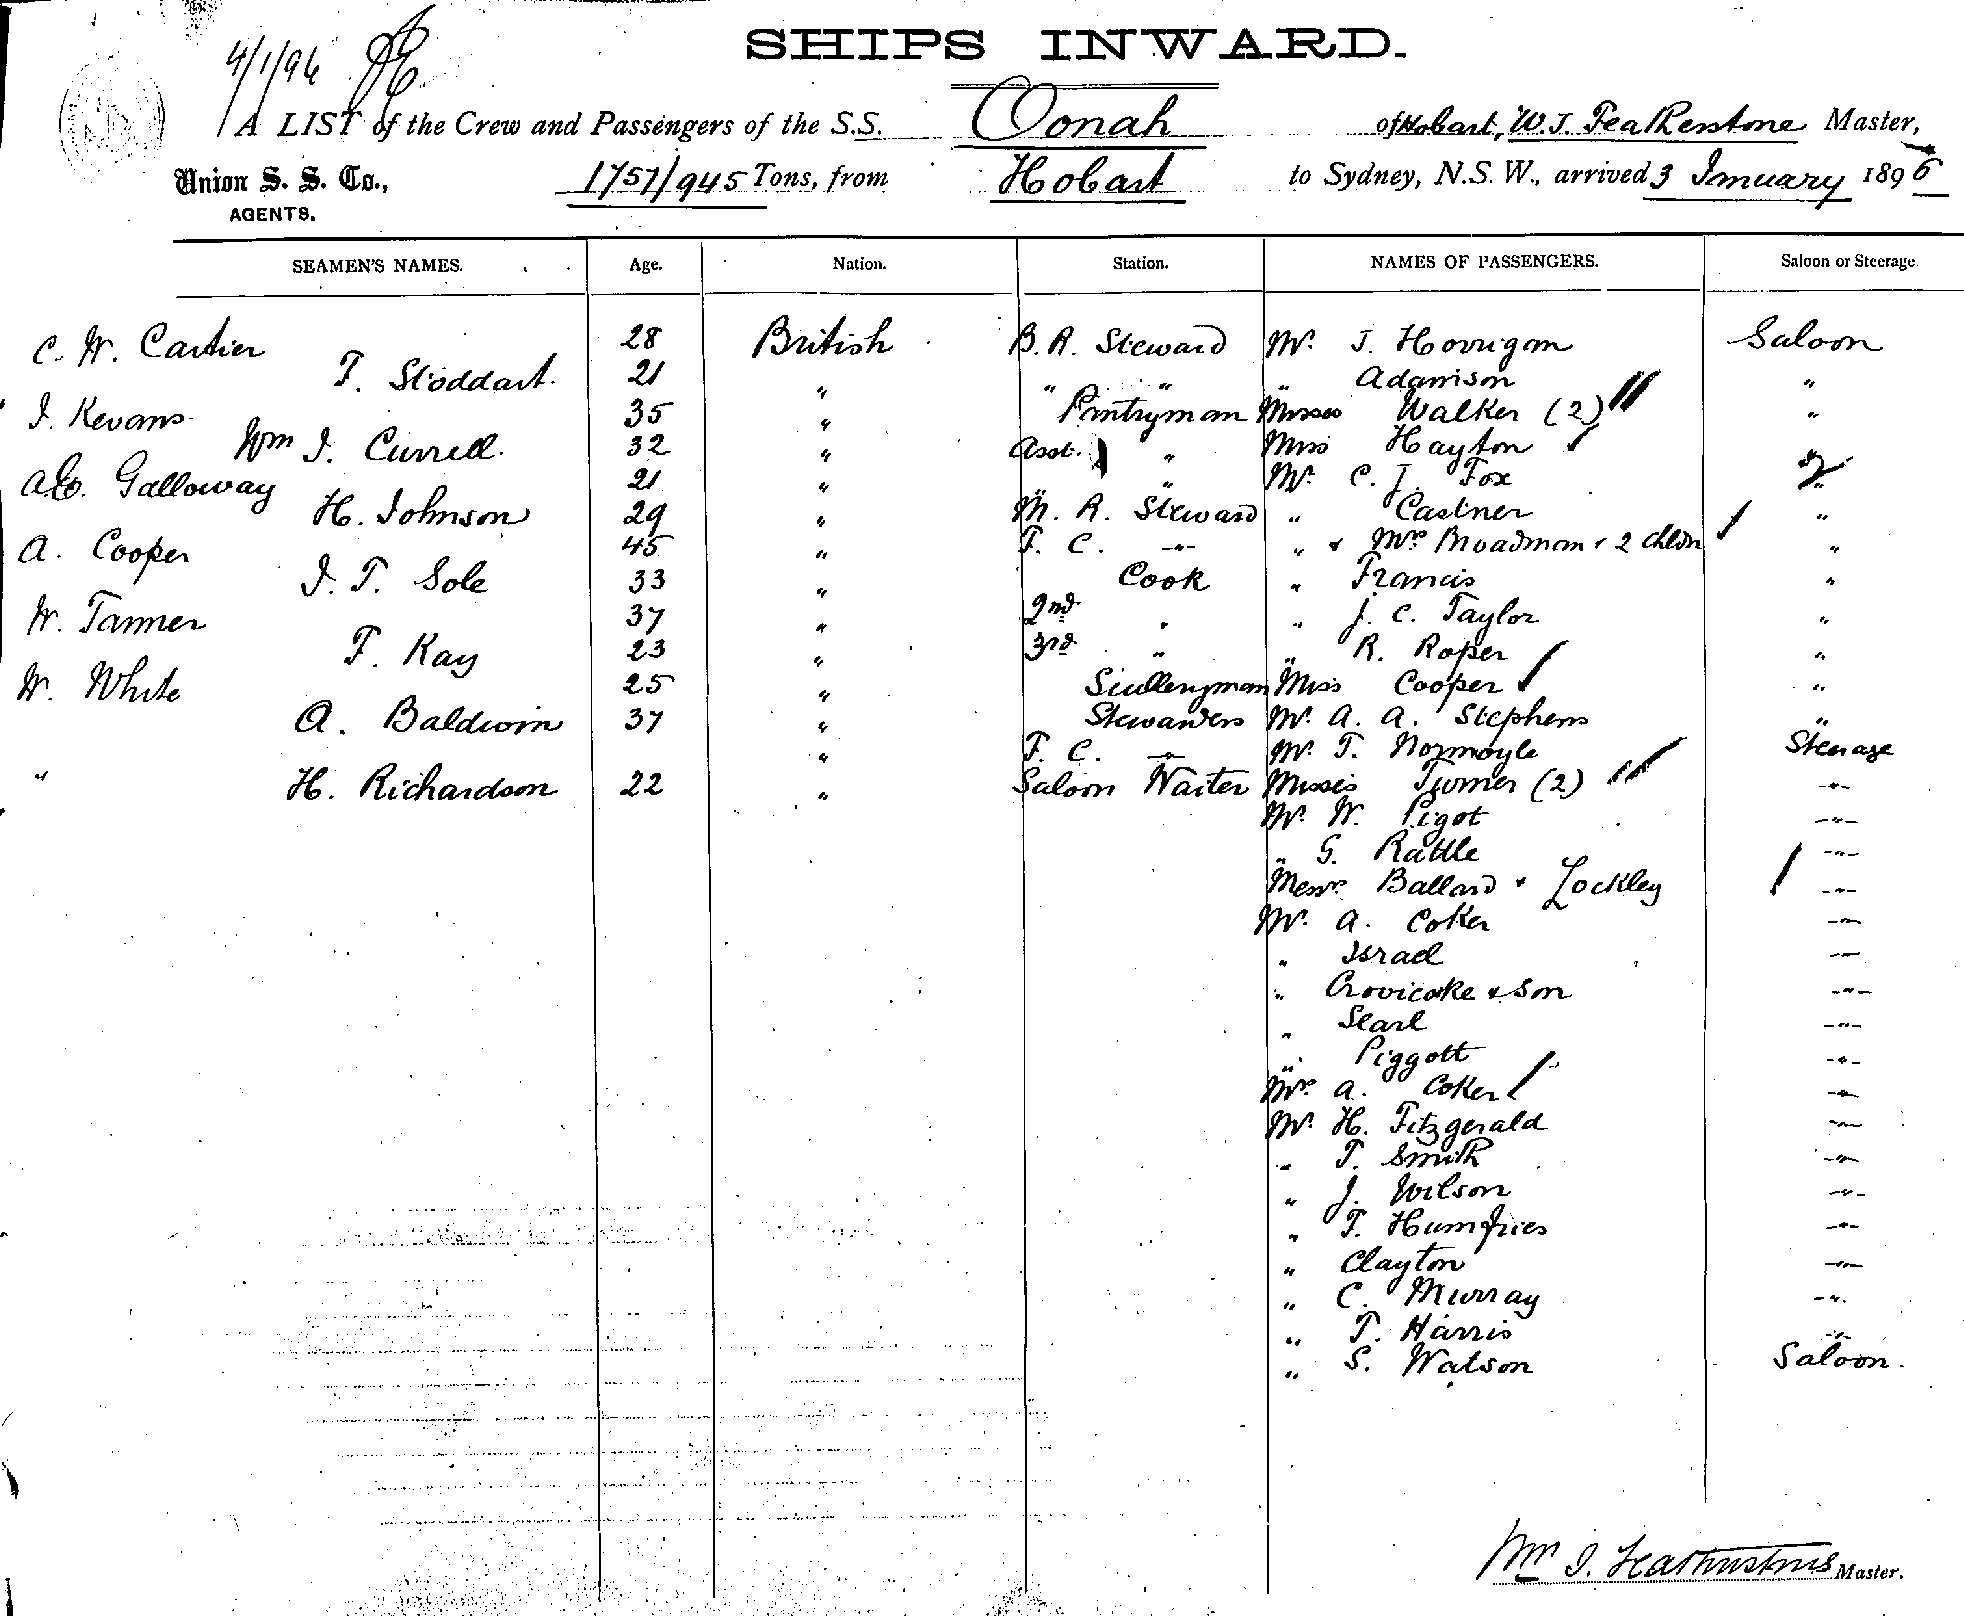 4/1/96
SHIPS INWARD.
A LIST of the Crew and Passengers of the S.S. Oonah of Hobart, W. J. Featherstone Master,
Union S. S. Co., 1757/945 Tons, from Hobart to Sydney, N.S.W., arrived 3 January 1896
AGENTS.
SEAMEN'S NAMES. Age. Nation. Station. NAMES OF PASSENGERS. Saloon or Steerage
C. W. Cartier 28 British B. R. Steward Mr. J. Horrigan Saloon
T. Stoddart. 21 " " " " Adamson "
J. Kevans 35 " Pantryman Misses Walker (2) "
Wm J. Currell. 32 " Asst. " Miss Hayton "
Galloway 21 " " " Mr. C. J. Fox "
H. Johnson 29 " M. R. Steward " Castner "
A. Cooper 45 " F. C. -"- " & Mrs Broadman & 2 chldn "
J. T. Sole 33 " Cook " Francis "
W. Tanner 37 " 2nd " " J. C. Taylor "
F. Kay 23 " 3rd " " R. Roper "
W. White 25 " Sculleryman Miss Cooper "
A. Baldwin 37 " Stewardess Mr. A. A. Stephens "
" F. C. -"- Mr. T. Normoyle Steerage
" H. Richardson 22 " Saloon Waiter Misses Turner (2) -"-
Mr. W. Pigot -"-
" G. Rattle -"-
Messrs Ballard & Lockley -"-
Mr. A. Coker -"-
" Israel -"-
" & Son -"-
" Searl -"-
" Piggott -"-
Mrs A. Coker -"-
Mr. H. Fitzgerald -"-
" T. Smith -"-
" J. Wilson -"-
" T. Humfries -"-
" Clayton -"-
" C. Murray -"-
" T. Harris -"-
" S. Watson Saloon.
Wm J. Featherstone Master.